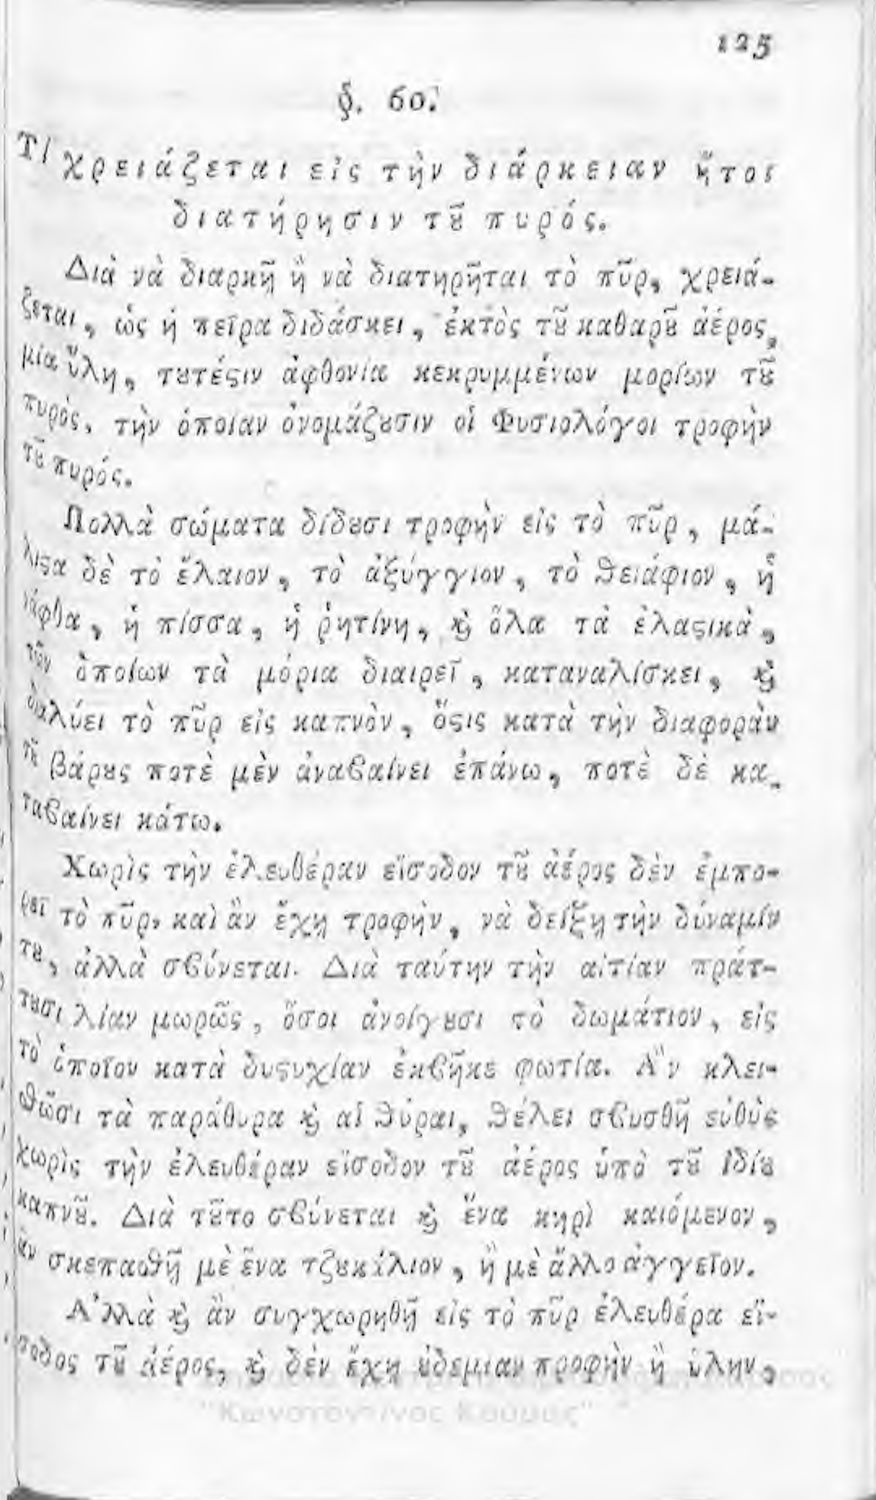 125
§. 60.
Τί χρειάζεται εἰς τὴν διάρκειαν ἤτοι
διατήρησιν τȣ͂ πυρός.
Διὰ νὰ διαρκῇ ἢ νὰ διατηρῆται τὸ πῦρ, χρειά-
ζεται, ὡς ἡ πεῖρα διδάσκει, ἐκτὸς τȣ͂ καθαρȣ͂ ἀέρος,
μία ὕλη, τȣτέϛιν ἀφθονία κεκρυμμένων μορίων τȣ͂
πυρός, τὴν ὁποίαν ὀνομάζȣσιν οἱ Φυσιολόγοι τροφὴν
τȣ͂ πυρός.
Πολλὰ σώματα δίδȣσι τροφὴν εἰς τὸ πῦρ, μά-
λιϛα δὲ τὸ ἔλαιον, τὸ ἀξύγγιον, τὸ θειάφιον, ἡ
νάφθα, ἡ πίσσα, ἡ ῥητίνη, ϗ̀ ὅλα τὰ ἐλαϛικὰ,
τῶν ὁποίων τὰ μόρια διαιρεῖ, καταναλίσκει, ϗ̀
διαλύει τὸ πῦρ εἰς καπνὸν, ὅϛις κατὰ τὴν διαφορὰν
τȣ͂ βάρȣς ποτὲ μὲν ἀναβαίνει ἐπάνω, ποτὲ δὲ κα-
ταβαίνει κάτω.
Χωρὶς τὴν ἐλευθέραν εἴσοδον τȣ͂ ἀέρος δὲν ἐμπο-
ρεῖ τὸ πῦρ, καὶ ἂν ἔχῃ τροφὴν, νὰ δείξῃ τὴν δύναμίν
τȣ, ἀλλὰ σβύνεται. Διὰ ταύτην τὴν αἰτίαν πράτ-
τȣσι λίαν μωρῶς, ὅσοι ἀνοίγȣσι τὸ δωμάτιον, εἰς
τὸ ὁποῖον κατὰ δυϛυχίαν ἐκβῆκε φωτία. Ἂν κλει-
σθῶσι τὰ παράθυρα ϗ̀ αἱ θύραι, θέλει σβυσθῆ εὐθὺς
χωρὶς τὴν ἐλευθέραν εἴσοδον τȣ͂ ἀέρος ὑπὸ τȣ͂ ἰδίȣ
καπνȣ͂. Διὰ τȣ͂το σβύνεται ϗ̀ ἕνα κηρὶ καιόμενον,
ἂν σκεπασθῇ μὲ ἕνα τζȣκάλιον, ἢ μὲ ἄλλο ἀγγεῖον.
Ἀλλὰ ϗ̀ ἂν συγχωρηθῇ εἰς τὸ πῦρ ἐλευθέρα εἴ-
σοδος τȣ͂ ἀέρος, ϗ̀ δὲν ἔχῃ ȣ̓δεμίαν τροφὴν ἢ ὕλην,
"Κωνσταντίνος Κούμας"